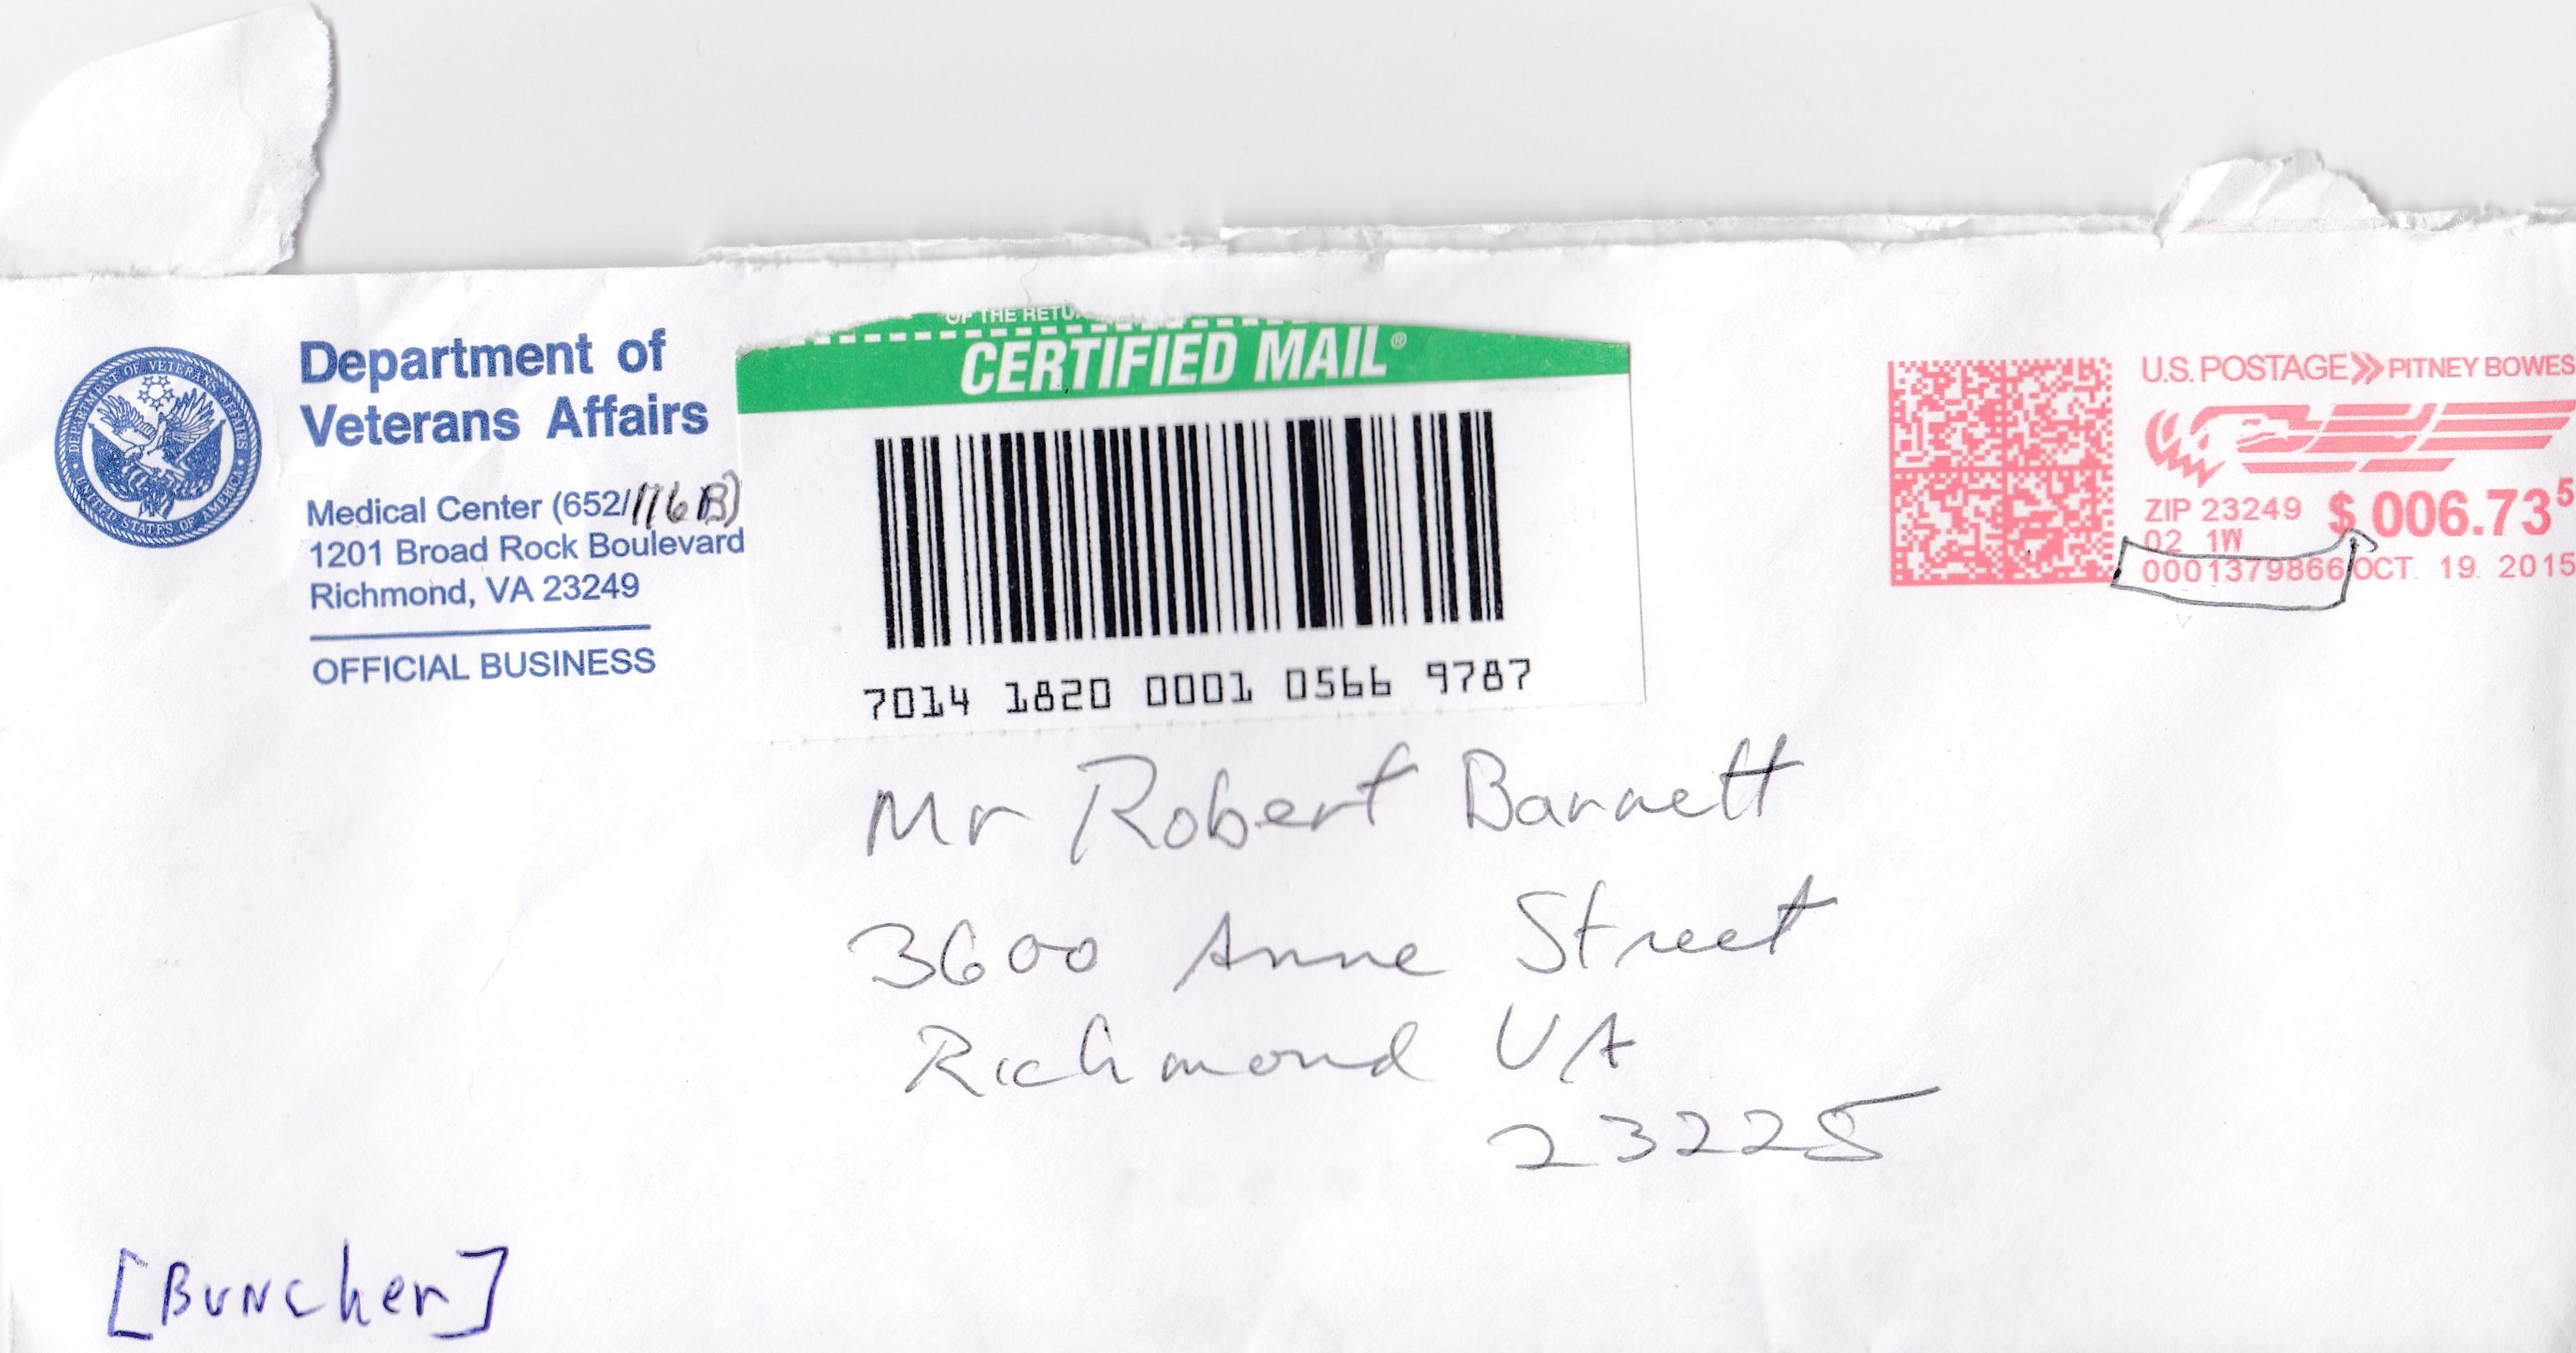 DEPARTMENT OF VETERANS AFFAIRS
UNITED STATES OF AMERICA
Department of
Veterans Affairs
Medical Center (652/116B)
1201 Broad Rock Boulevard
Richmond, VA 23249
OFFICIAL BUSINESS
OF THE RETU
CERTIFIED MAIL®
7014 1820 0001 0566 9787
U.S. POSTAGE >> PITNEY BOWES
ZIP 23249 $ 006.73⁵
02 1W
0001379866 OCT. 19. 2015
Mr Robert Barnett
3600 Anne Street
Richmond VA
23225
[Buncher]